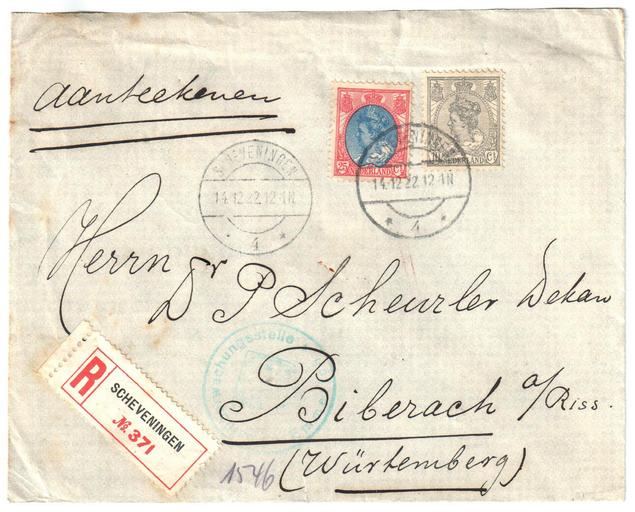 Aanteekenen
25 NEDERLAND Ct
NEDERLAND Ct
SCHEVENINGEN
14.12.22.12-1N
4
14.12.22.12-1N
4
Herrn Dr
Dr P Scheurler Dekan
wachungsstelle
R
SCHEVENINGEN
№ 371
Biberach a/Riss.
(Würtemberg)
1546